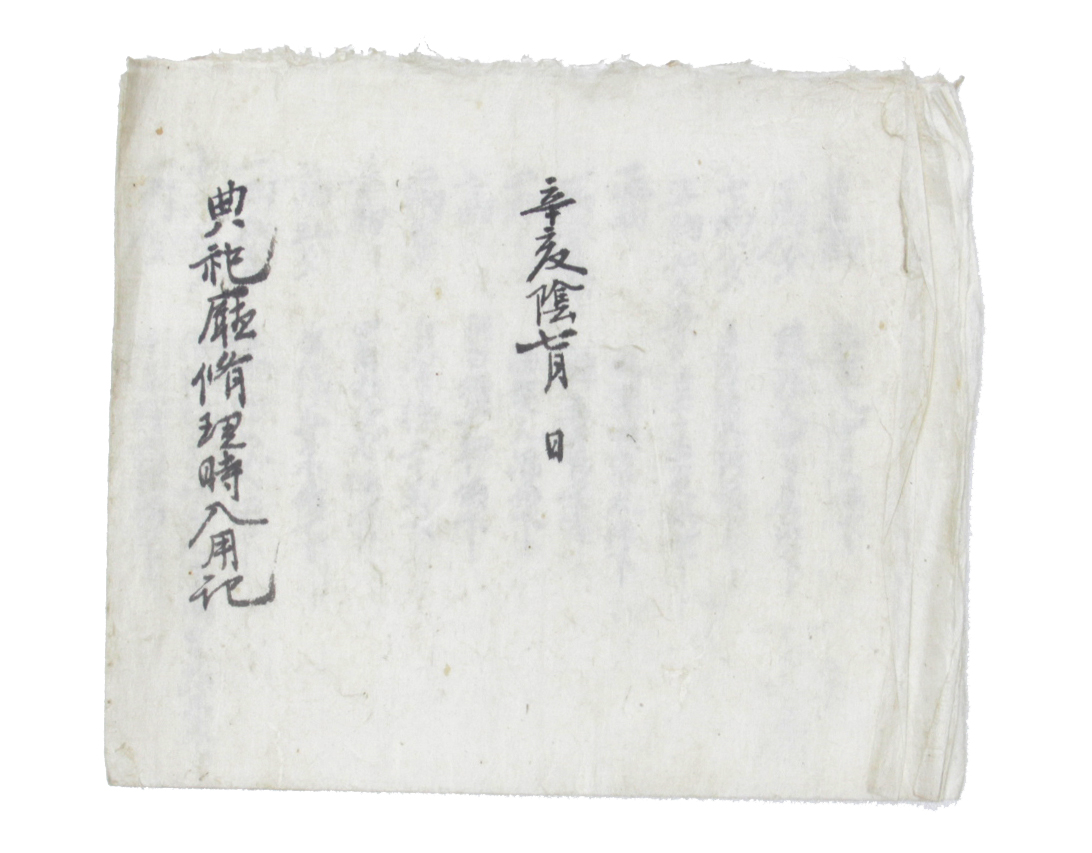 辛亥陰七月 日
典祀廳修理時入用記